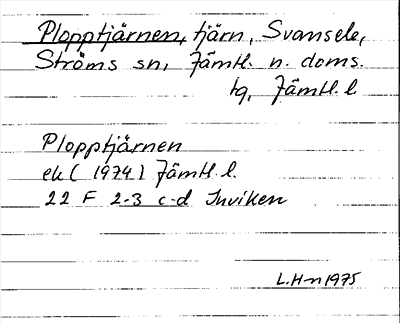 Plopptjärnen, tjärn, Svansele,
Ströms sn, Jämtl. n. doms.
tg, Jämtl. l
Plopptjärnen
ek (1974) Jämtl. l.
22 F 2-3 c-d Inviken
L.H-n 1975